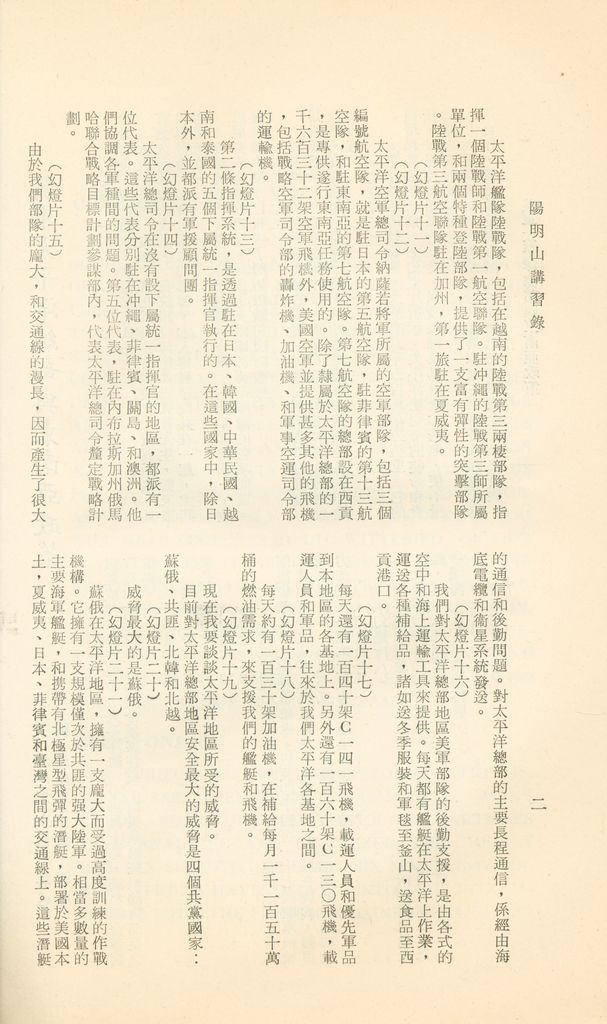 陽明山講習錄
二
太平洋艦隊陸戰隊，包括在越南的陸戰第三兩棲部隊，指
揮一個陸戰師和陸戰第一航空聯隊。駐冲繩的陸戰第三師所屬
單位，和兩個特種登陸部隊，提供了一支富有彈性的突擊部隊
。陸戰第三航空聯隊駐在加州，第一旅駐在夏威夷。
（幻燈片十一）
（幻燈片十二）
太平洋空軍總司令納薩若將軍所屬的空軍部隊，包括三個
編號航空隊，就是駐日本的第五航空隊，駐菲律賓的第十三航
空隊，和駐東南亞的第七航空隊。第七航空隊的總部設在西貢
，是專供遂行東南亞任務使用的。除了隸屬於太平洋總部的一
千六百三十二架空軍飛機外，美國空軍並提供甚多其他的飛機
，包括戰略空軍司令部的轟炸機、加油機、和軍事空運司令部
的運輸機。
（幻燈片十三）
第二條指揮系統，是透過駐在日本、韓國、中華民國、越
南和泰國的五個下屬統一指揮官執行的。在這些國家中，除日
本外，並都派有軍援顧問團。
（幻燈片十四）
太平洋總司令在沒有設下屬統一指揮官的地區，都派有一
位代表。這些代表分別駐在冲繩、菲律賓、關島、和澳洲。他
們協調各軍種間的問題。第五位代表，駐在內布拉斯加州俄馬
哈聯合戰略目標計劃參謀部內，代表太平洋總司令釐定戰略計
劃。
（幻燈片十五）
由於我們部隊的龐大，和交通線的漫長，因而產生了很大
的通信和後勤問題。對太平洋總部的主要長程通信，係經由海
底電纜和衞星系統發送。
（幻燈片十六）
我們對太平洋總部地區美軍部隊的後勤支援，是由各式的
空中和海上運輸工具來提供。每天都有艦艇在太平洋上作業，
運送各種補給品，諸如送冬季服裝和軍毯至釜山，送食品至西
貢港口。
（幻燈片十七）
每天還有一百四十架C一四一飛機，載運人員和優先軍品
到本地區的各基地上。另外還有一百六十架C一三〇飛機，載
運人員和軍品，往來於我們太平洋各基地之間。
（幻燈片十八）
每天約有一百三十架加油機，在補給每月一千一百五十萬
桶的燃油需求，來支援我們的艦艇和飛機。
（幻燈片十九）
現在我要談談太平洋地區所受的威脅。
目前對太平洋總部地區安全最大的威脅是四個共黨國家：
蘇俄、共匪、北韓和北越。
（幻燈片二十）
威脅最大的是蘇俄。
（幻燈片二十一）
蘇俄在太平洋地區，擁有一支龐大而受過高度訓練的作戰
機構。它擁有一支規模僅次於共匪的强大陸軍。相當多數量的
主要海軍艦艇，和携帶有北極星型飛彈的潛艇，部署於美國本
土，夏威夷、日本、菲律賓和臺灣之間的交通線上。這些潛艇